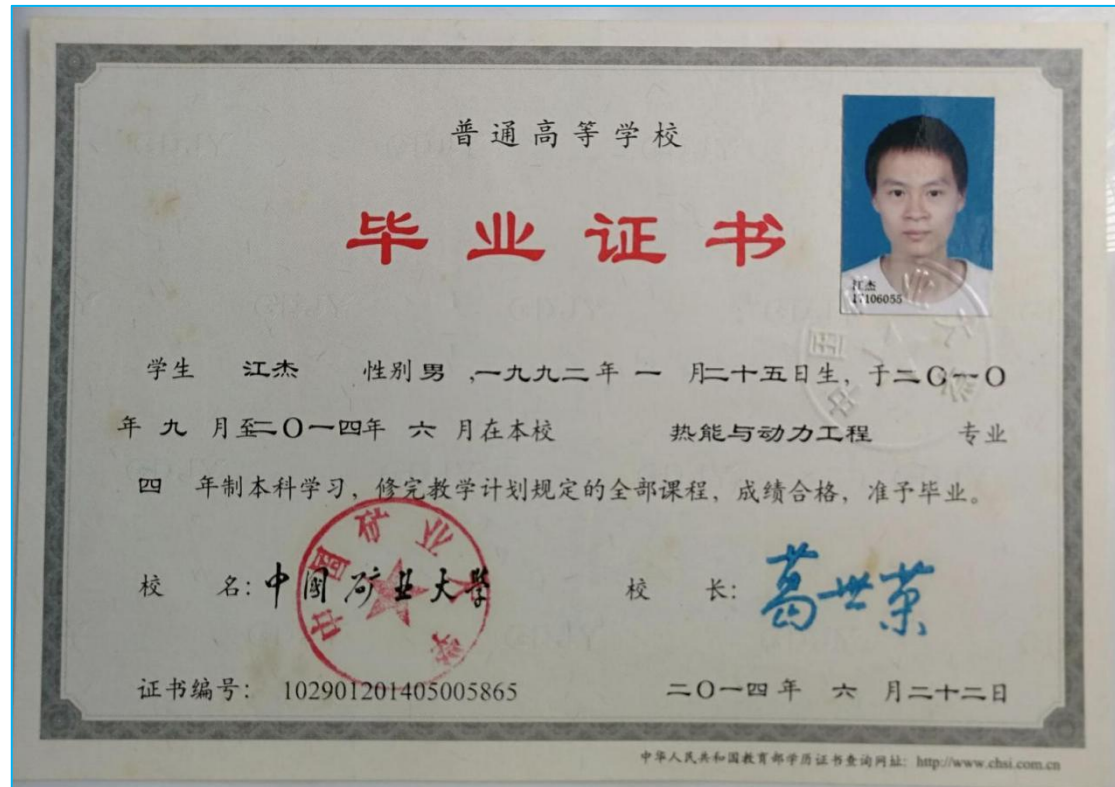 普通高等学校
毕业证书
江杰
17106055
学生 江杰 性别 男 ,一九九二年 一 月二十五日生, 于二〇一〇
年 九 月至二〇一四年 六 月在本校 热能与动力工程 专业
四 年制本科学习, 修完教学计划规定的全部课程, 成绩合格, 准予毕业。
校 名: 中国矿业大学 校 长: 葛世荣
中国矿业大学
证书编号: 102901201405005865 二〇一四年 六 月二十二日
中华人民共和国教育部学历证书查询网址: http://www.chsi.com.cn